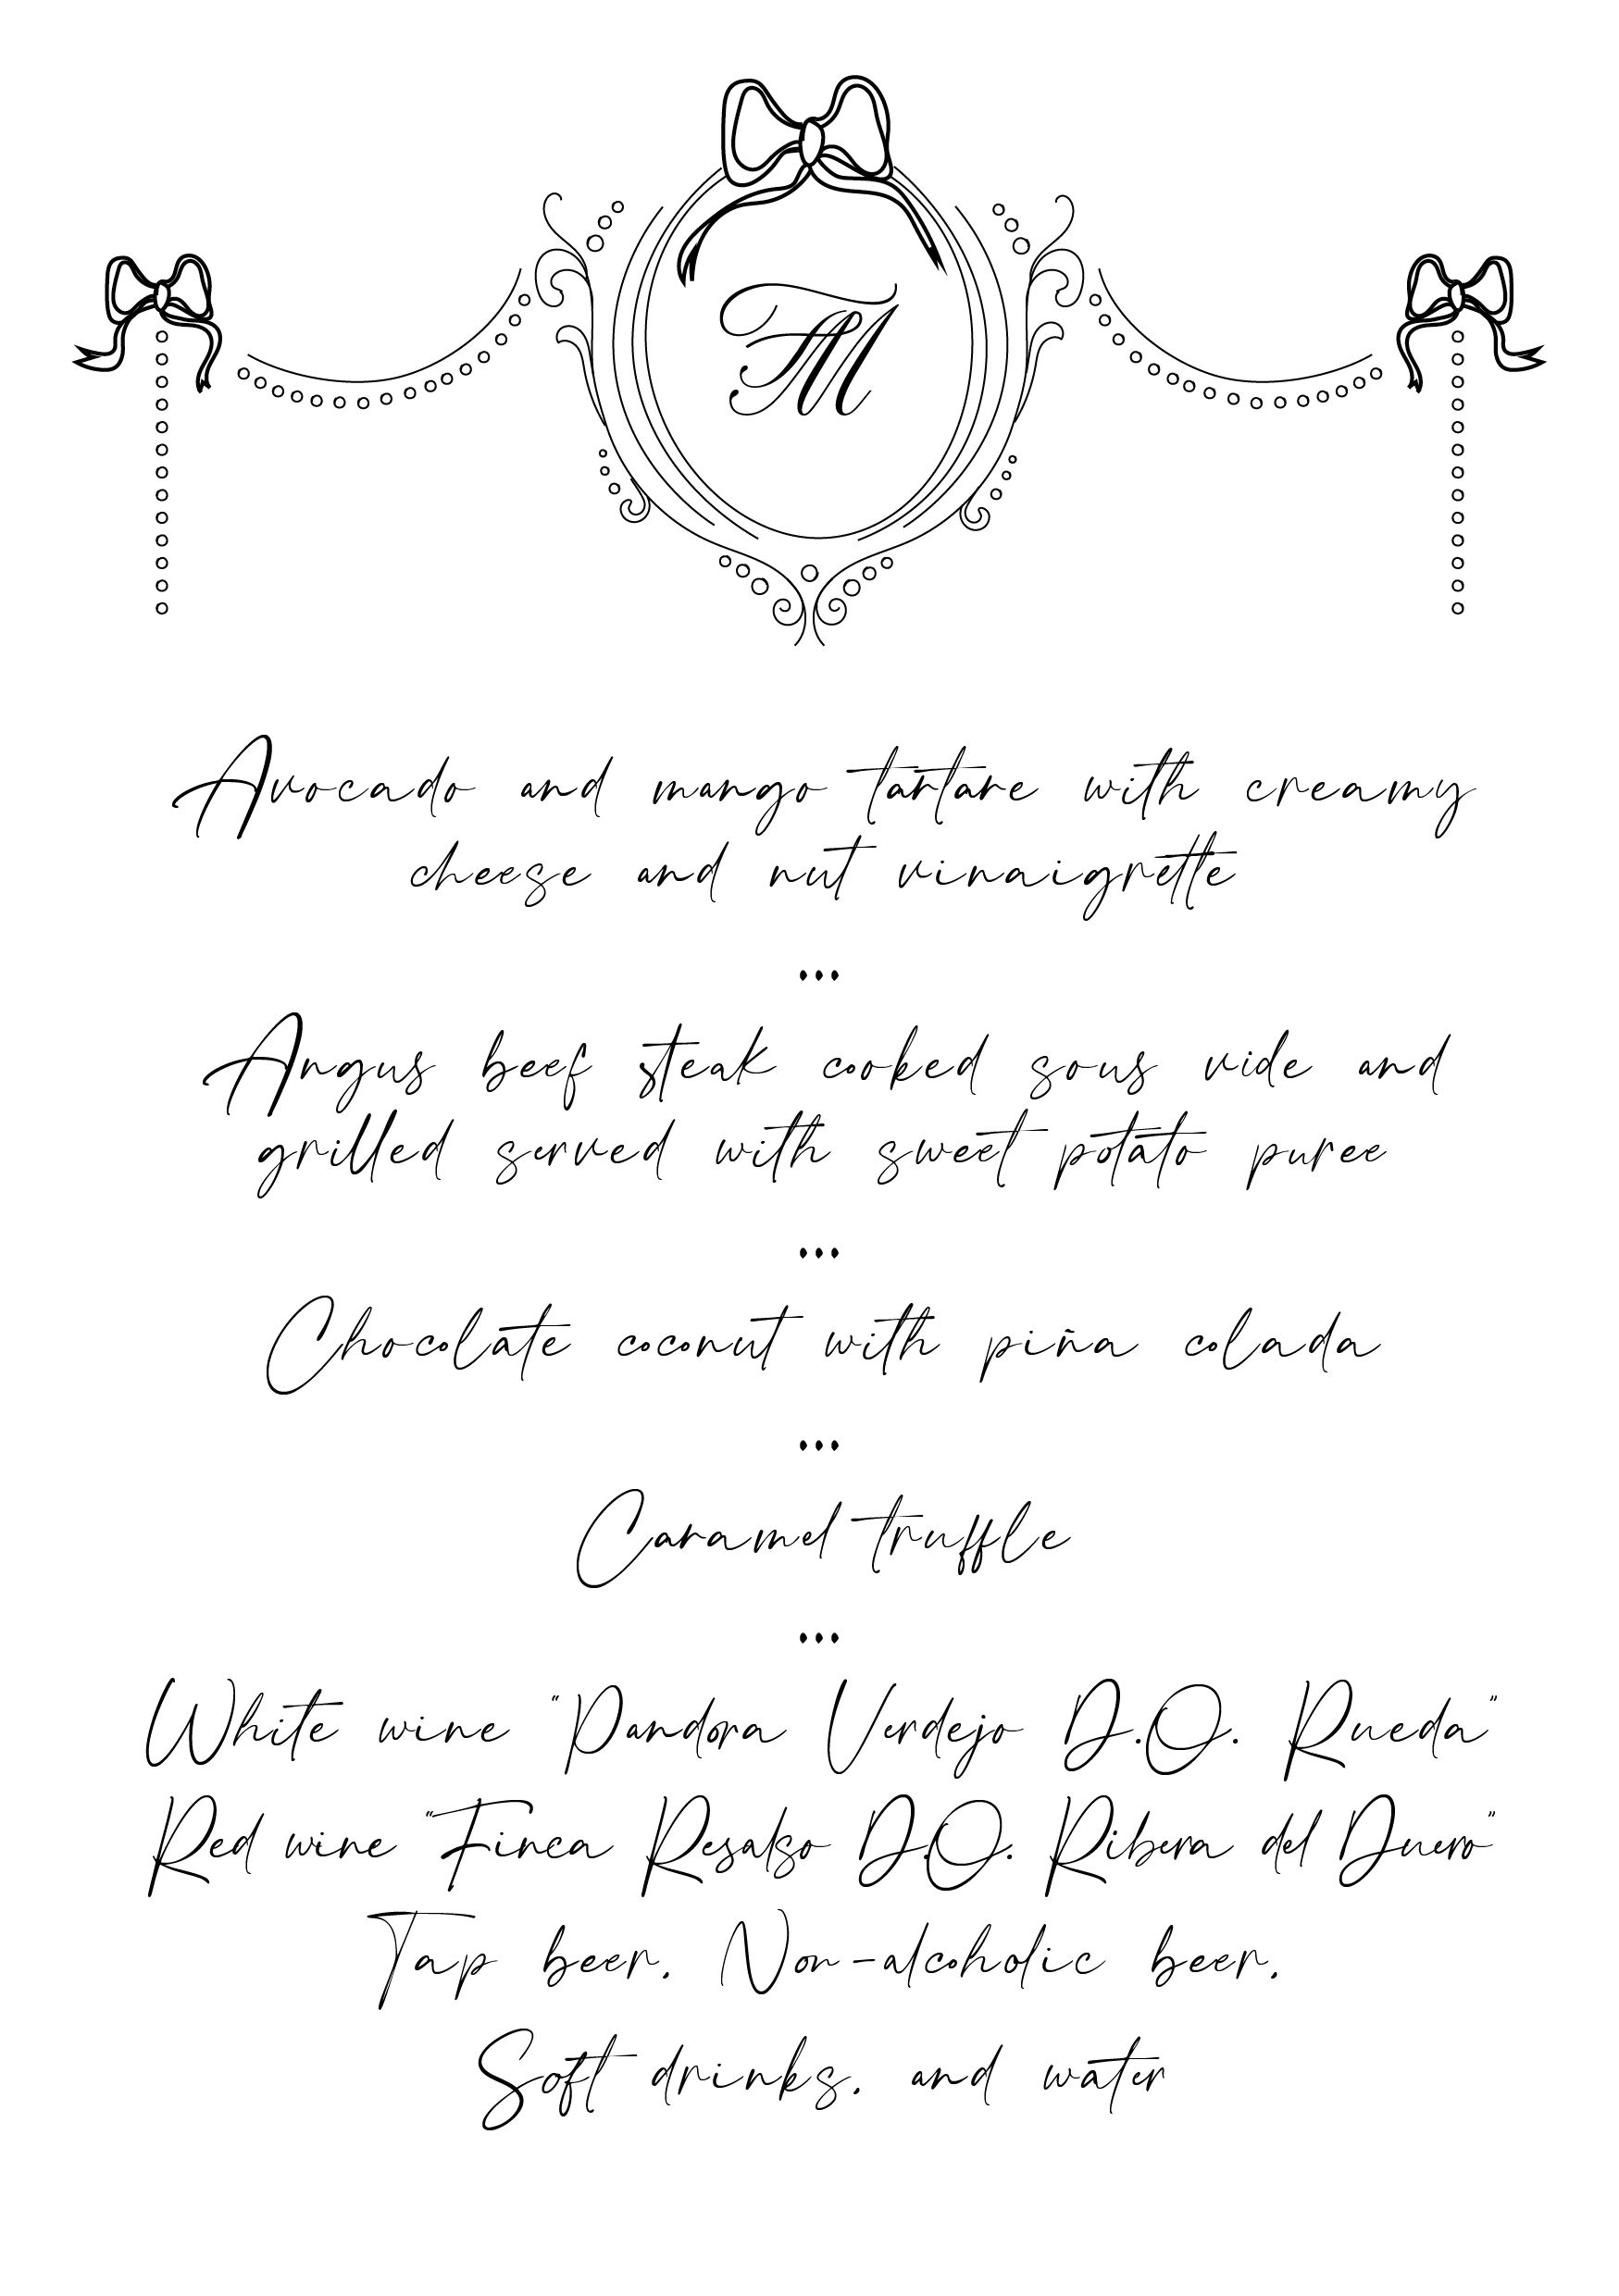 FM
Avocado and mango tartare with creamy
cheese and nut vinaigrette
...
Angus beef steak cooked sous vide and
grilled served with sweet potato puree
...
Chocolate coconut with piña colada
...
Caramel truffle
...
White wine "Pandora Verdejo D.O. Rueda"
Red wine "Finca Resalso D.O. Ribera del Duero"
Tap beer, Non-alcoholic beer,
Soft drinks, and water